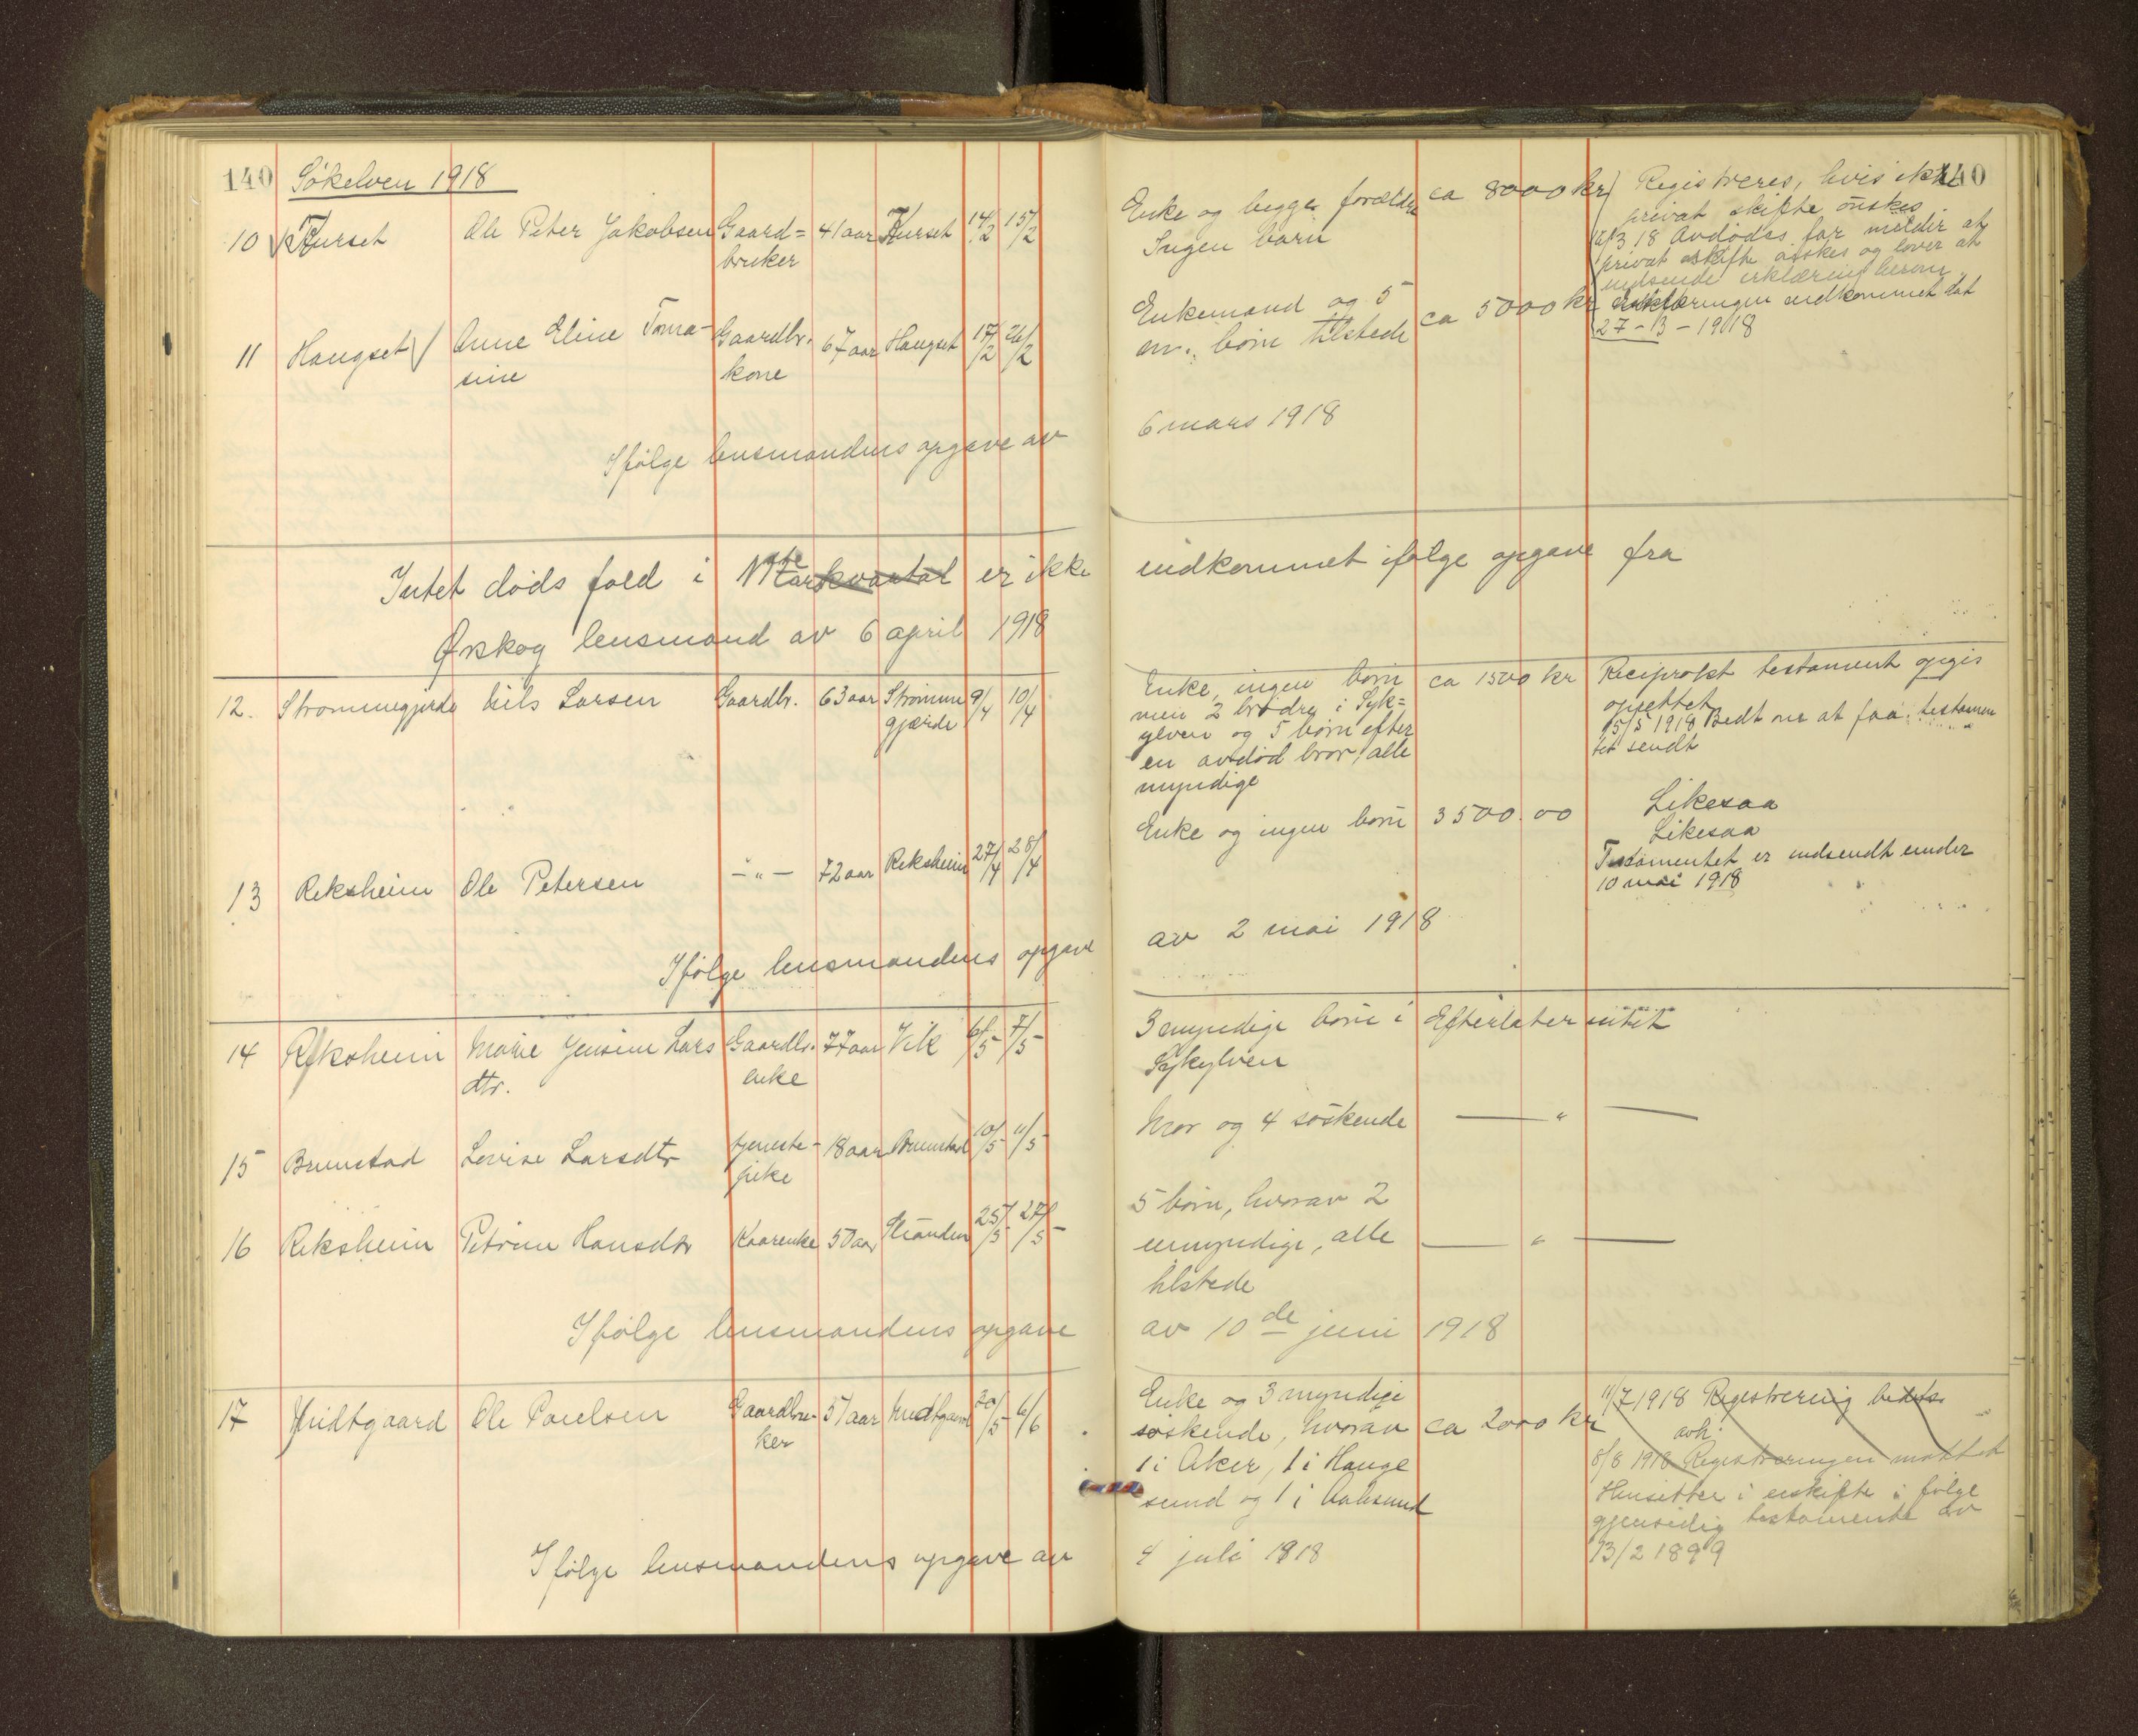 140 Søkelven 1918
10 Kurset Ole Peter Jakobsen Gaard= 41 aar Kurset 14/2 15/2
bruker
11 Haugset Anne Eline Toma- Gaardbr. 67 aar Haugset 17/2 26/2
sine kone
Ifølge lensmandens opgave av
Intet døds fald i er ikke
Ørskog lensmand av 6 april 1918
12. Strømmegjerde Nils Larsen Gaardbr. 63 aar Strømme 9/4 10/4
gjærde
13 Reksheim Ole Petersen —"— 72 aar Reksheim 27/4 28/4
Ifølge lensmandens opgave
14 Reksheim Marie Jensine Lars Gaardbr. 77 aar Vik 6/5 7/5
dtr. enke
15 Brunstad Lovise Larsdtr tjeneste- 18 aar Brunstad 10/5 11/5
pike
16 Reksheim Petrine Hansdtr Kaarenke 50 aar Stranden 25/5 27/5
Ifølge lensmandens opgave
17 Midtgaard Ole Paulsen Gaardbru- 57 aar Midtgaard 30/5 6/6
ker
Ifølge lensmandens opgave av
140
Enke og begge forældre ca 8000 kr Registreres, hvis ikke
Ingen barn privat skifte ønskes.
18 Avdødes far melder at
privat skifte ønskes og lover at
indsende erklæring herom
Enkemand og 5 ca 5000 kr Erklæringen indkommet dat
børn tilstede 27-3-1918
6 mars 1918
indkommet ifølge opgave fra
Enke, ingen børn ca 1500 kr Reciprokt testament opgis
men 2 brødre i Syk= oprettet
ylven og 5 børn efter 15/5 1918 Bedt om at faa testamen
en avdød bror, alle tet sendt
myndige
Enke og ingen børn 3500.00 Likesaa
Likesaa
Testamentet er indsendt under
10 mai 1918
av 2 mai 1918
3 myndige børn i Efterlater intet
Sykylven
Mor og 4 søskende — " —
5 børn, hvorav 2
umyndige, alle — " —
tilstede
av 10de juni 1918
Enke og 3 myndige 11/7 1918 Registrering
søskende, hvorav ca 2000 kr
1 i Aker, 1 i Hauge 8/8 1918 Registreringen
sund og 1 i Aalesund Hensitter i uskifte i følge
gjensidig testamente av
4 juli 1918 13/2 1899